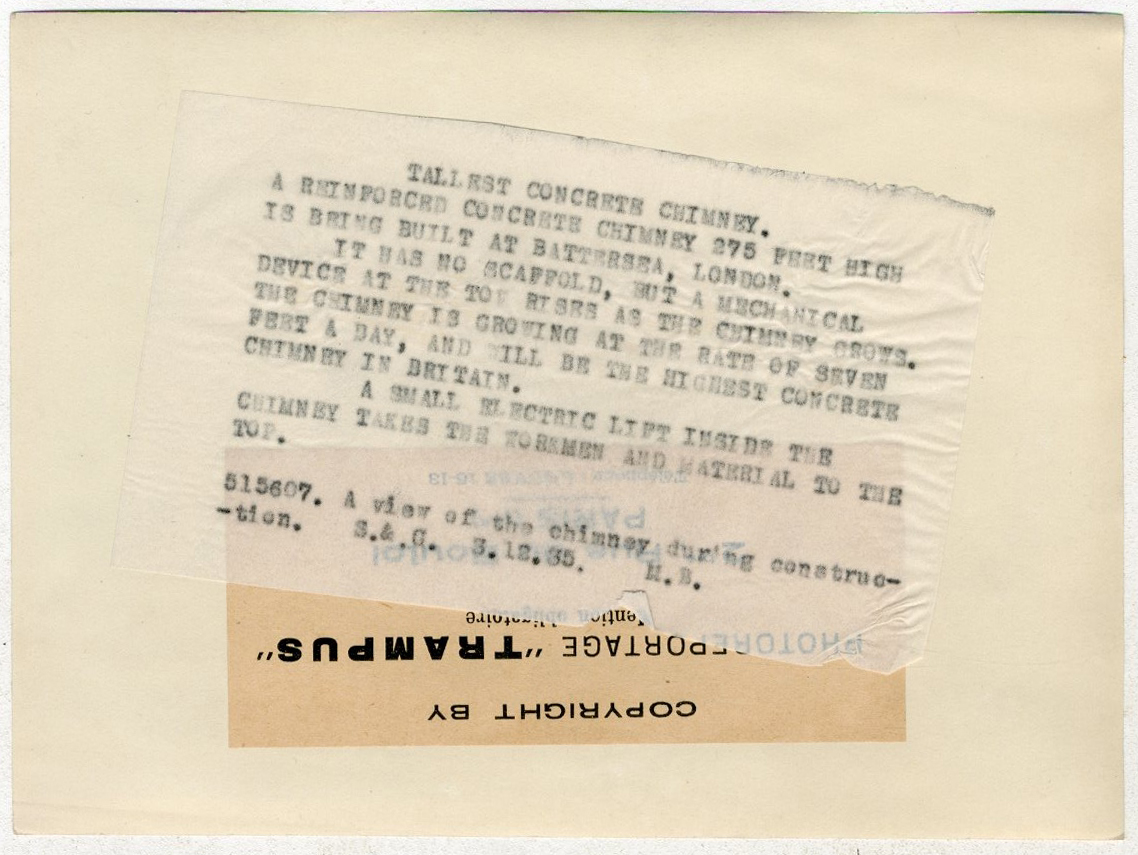 TALLEST CONCRETE CHIMNEY.
A REINFORCED CONCRETE CHIMNEY 275 FEET HIGH
IS BEING BUILT AT BATTERSEA, LONDON.
IT HAS NO SCAFFOLD, BUT A MECHANICAL
DEVICE AT THE TOP RISES AS THE CHIMNEY GROWS.
THE CHIMNEY IS GROWING AT THE RATE OF SEVEN
FEET A DAY, AND WILL BE THE HIGHEST CONCRETE
CHIMNEY IN BRITAIN.
A SMALL ELECTRIC LIFT INSIDE THE
CHIMNEY TAKES THE WORKMEN AND MATERIAL TO THE
TOP.
515607. A view of the chimney during construc-
-tion. S.&.G. 3.12.35. M.B.
COPYRIGHT BY
PHOTOREPORTAGE "TRAMPUS"
Mention obligatoire
PARIS
Téléphone 18-13